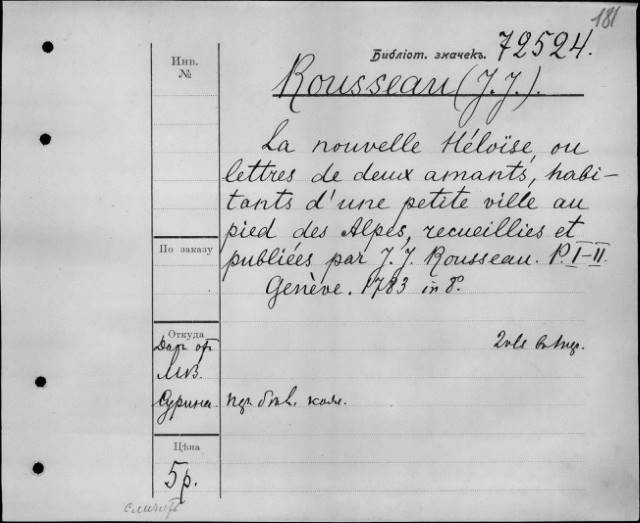 181
Библіот. значекъ. 72524.
Инв.
№
Rousseau (J. J.).
La nouvelle Héloïse, ou
lettres de deux amants, habi-
tants d'une petite ville au
pied des Alpes, recueillies et
publiées par J. J. Rousseau. P. I-II.
Genève. 1783 in 8°.
По заказу
Откуда
Даръ
2 vls
Сурина
Цѣна
5 р.